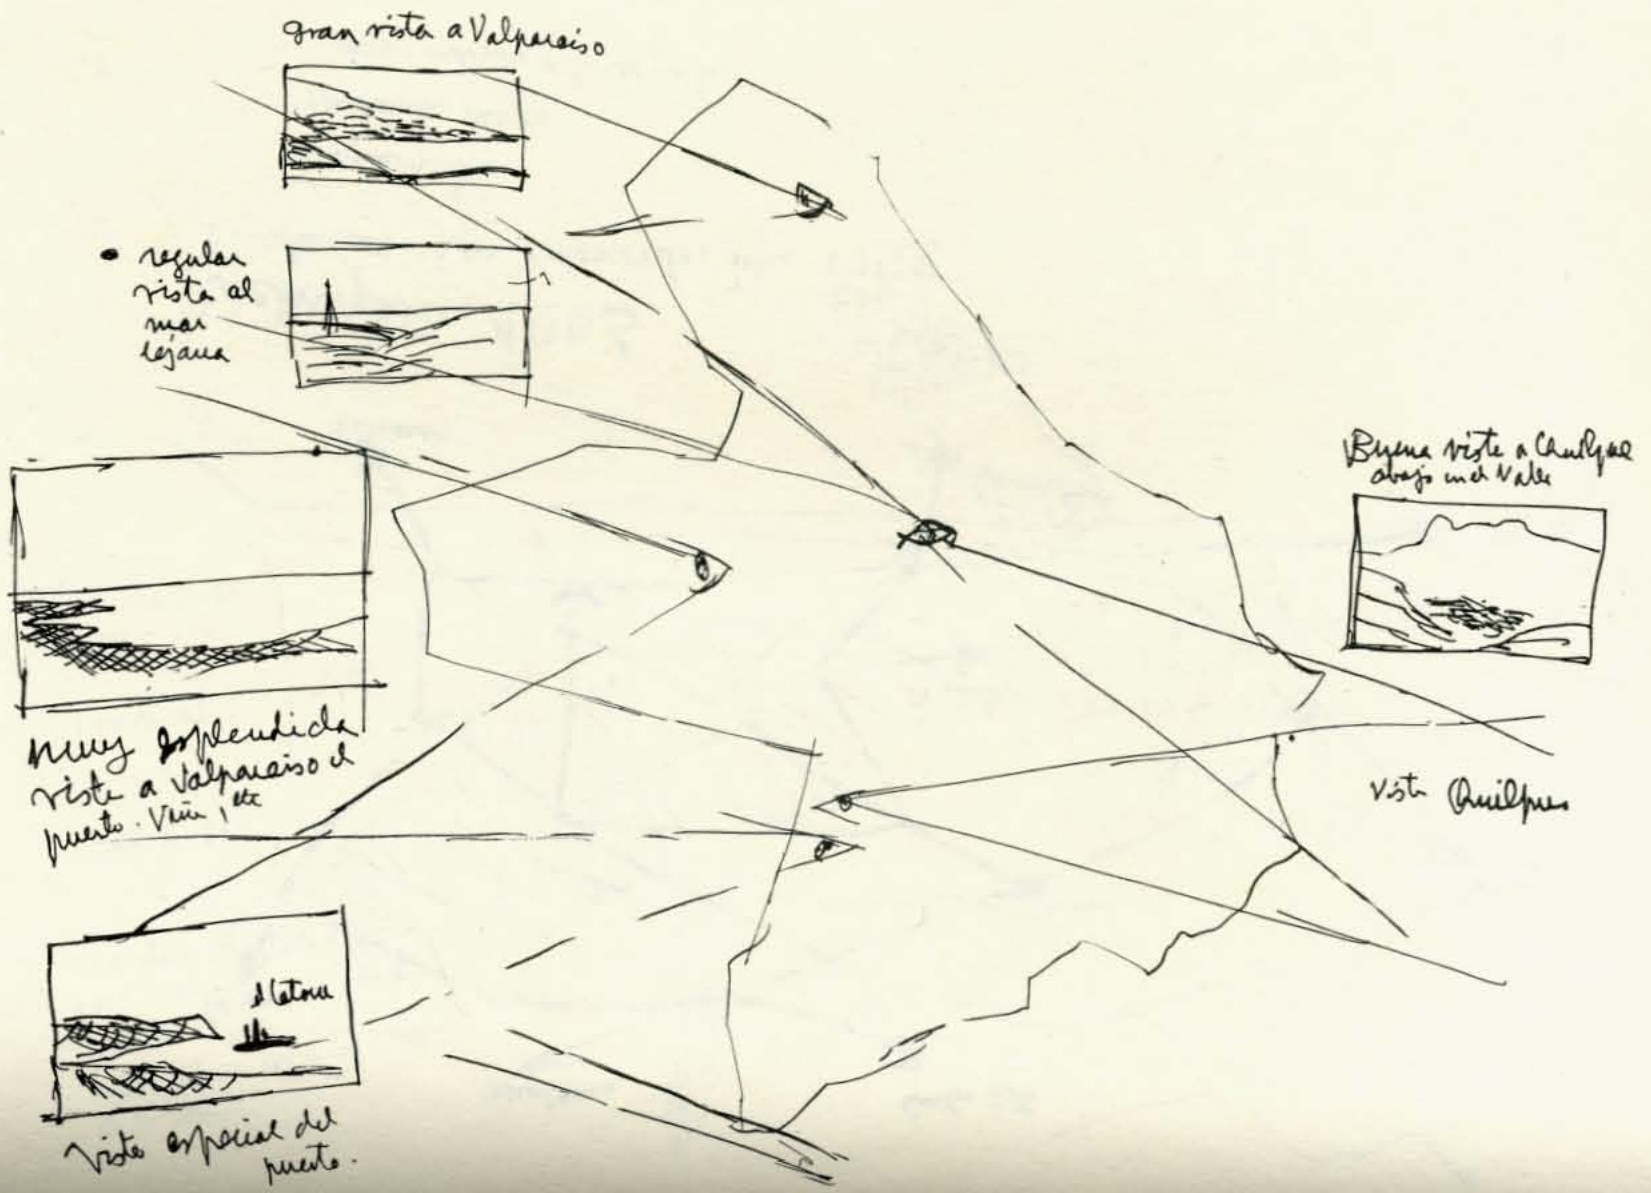 gran vista a Valparaiso
regular
vista al
mar
lejana
muy esplendida
vista a Valparaiso el
puerto. Viña, etc
Buena vista a Quilpue
abajo en el Valle
Vista Quilpue
vista especial del
puerto.